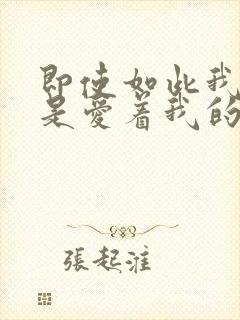 即使如此我
是愛着我的
張起淮